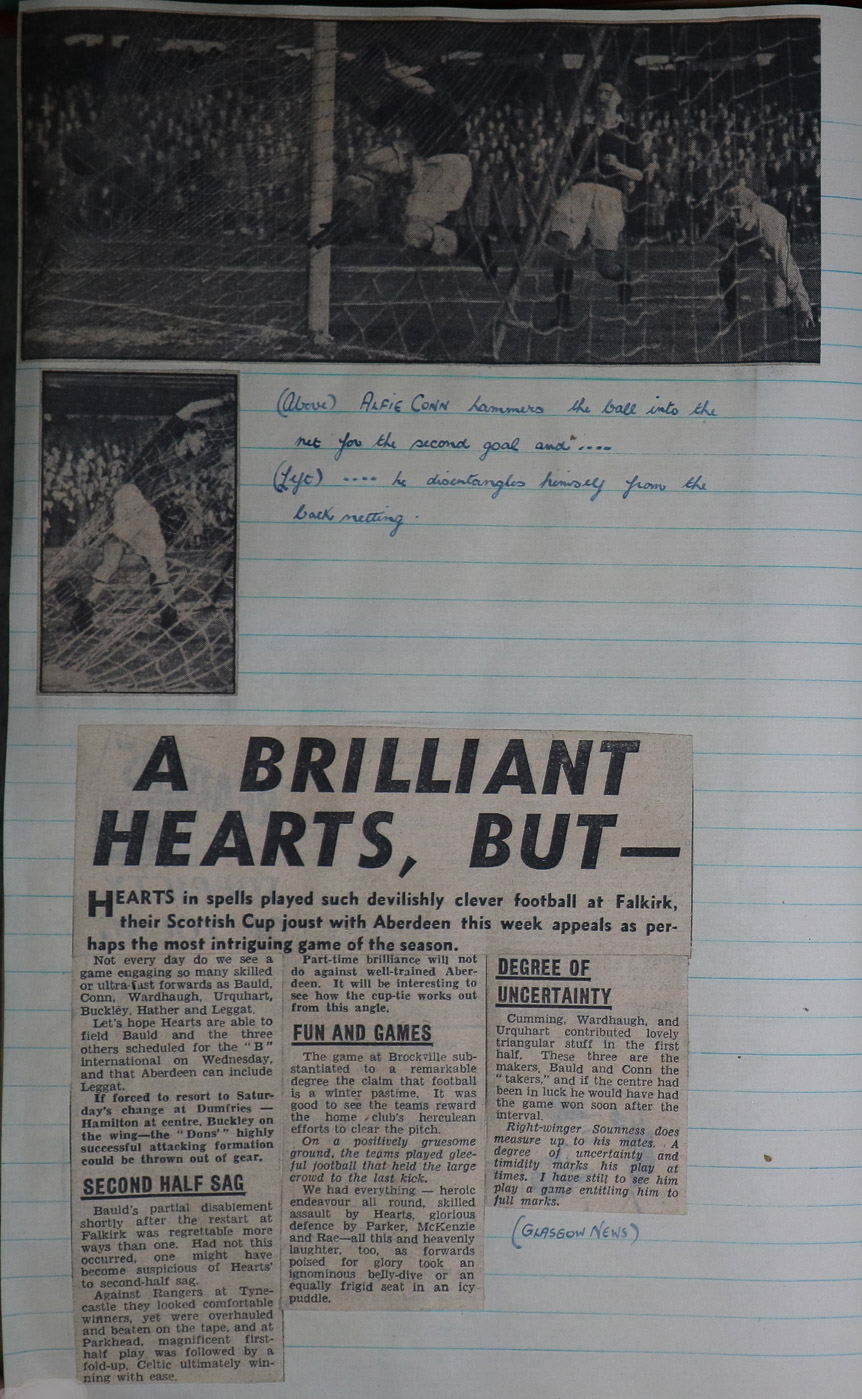 (Above) ALFIE CONN hammers the ball into the
net for the second goal and ....
(Left) .... he disentangles himself from the
back netting.
A BRILLIANT
HEARTS, BUT—
HEARTS in spells played such devilishly clever football at Falkirk,
their Scottish Cup joust with Aberdeen this week appeals as per-
haps the most intriguing game of the season.
Not every day do we see a
game engaging so many skilled
or ultra-fast forwards as Bauld,
Conn, Wardhaugh, Urquhart,
Buckley, Hather and Leggat.
Let's hope Hearts are able to
field Bauld and the three
others scheduled for the "B"
international on Wednesday,
and that Aberdeen can include
Leggat.
If forced to resort to Satur-
day's change at Dumfries —
Hamilton at centre, Buckley on
the wing—the "Dons'" highly
successful attacking formation
could be thrown out of gear.
SECOND HALF SAG
Bauld's partial disablement
shortly after the restart at
Falkirk was regrettable more
ways than one. Had not this
occurred, one might have
become suspicious of Hearts'
to second-half sag.
Against Rangers at Tyne-
castle they looked comfortable
winners, yet were overhauled
and beaten on the tape, and at
Parkhead, magnificent first-
half play was followed by a
fold-up, Celtic ultimately win-
ning with ease.
Part-time brilliance will not
do against well-trained Aber-
deen. It will be interesting to
see how the cup-tie works out
from this angle.
FUN AND GAMES
The game at Brockville sub-
stantiated to a remarkable
degree the claim that football
is a winter pastime. It was
good to see the teams reward
the home club's herculean
efforts to clear the pitch.
On a positively gruesome
ground, the teams played glee-
ful football that held the large
crowd to the last kick.
We had everything — heroic
endeavour all round, skilled
assault by Hearts, glorious
defence by Parker, McKenzie
and Rae—all this and heavenly
laughter, too, as forwards
poised for glory took an
ignominous belly-dive or an
equally frigid seat in an icy
puddle.
DEGREE OF
UNCERTAINTY
Cumming, Wardhaugh, and
Urquhart contributed lovely
triangular stuff in the first
half. These three are the
makers, Bauld and Conn the
"takers," and if the centre had
been in luck he would have had
the game won soon after the
interval.
Right-winger Sounness does
measure up to his mates. A
degree of uncertainty and
timidity marks his play at
times. I have still to see him
play a game entitling him to
full marks.
(GLASGOW NEWS)